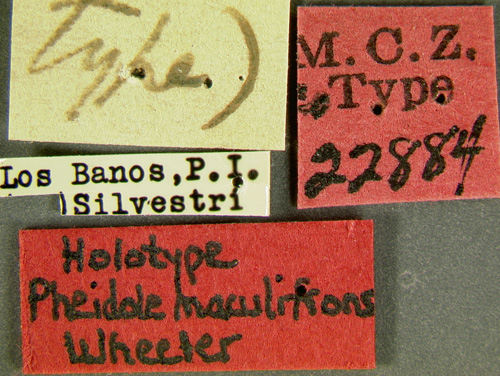 type.)
M.C.Z.
Type
22884
Los Banos, P.I.
Silvestri
Holotype
Pheidole maculifrons
Wheeler